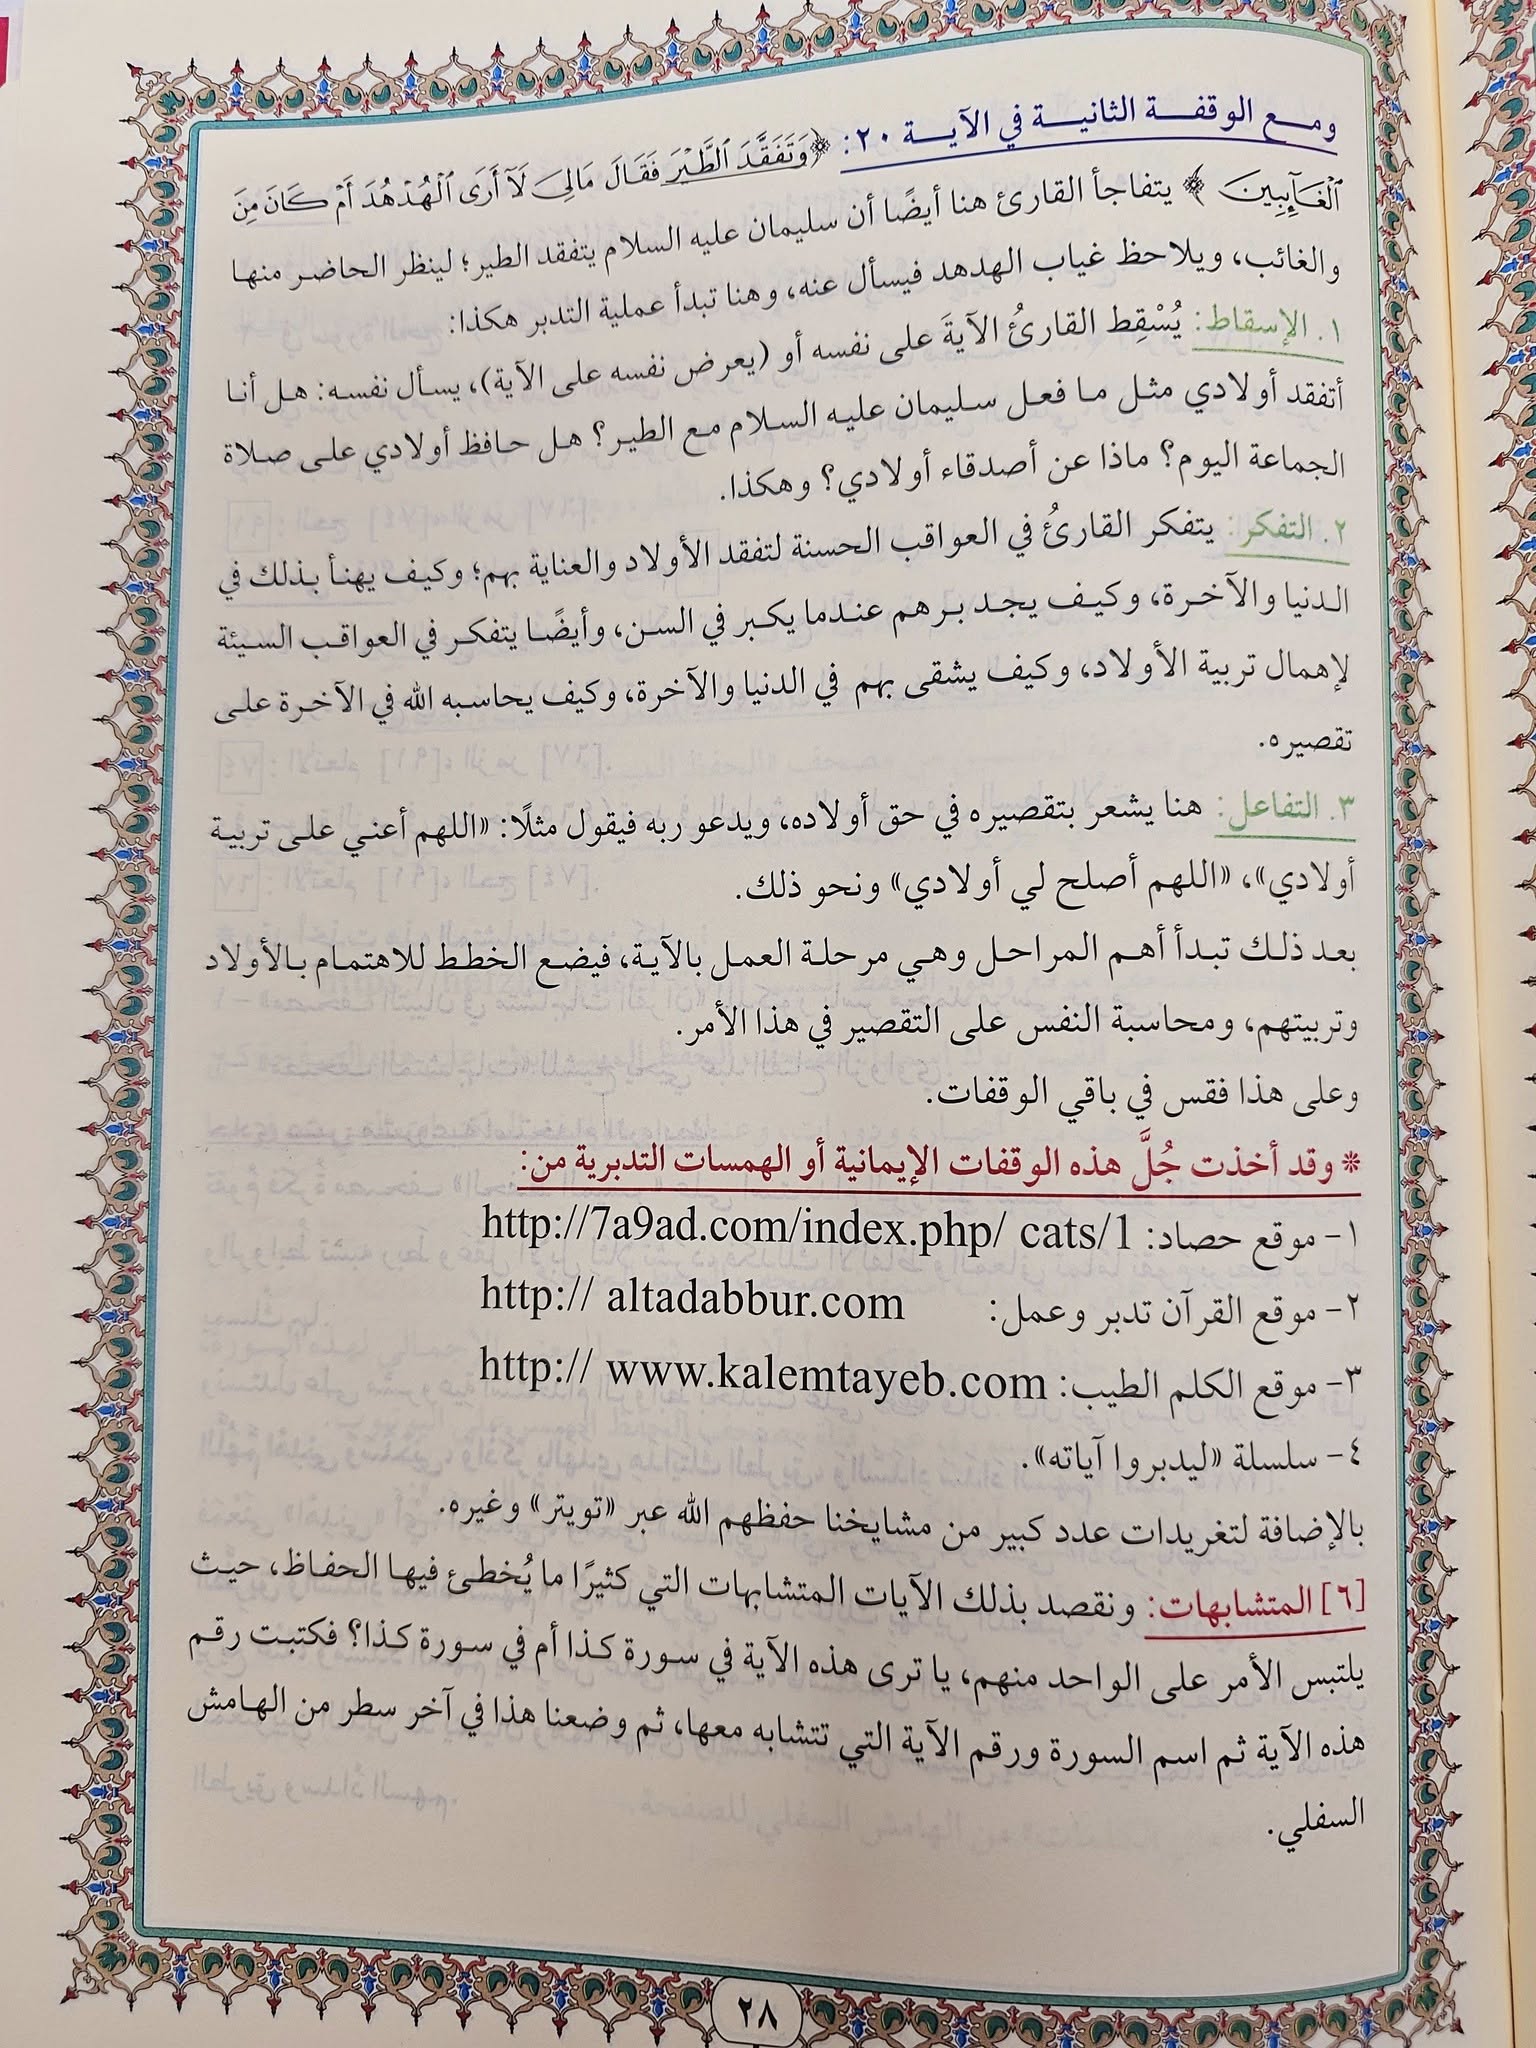 ومع الوقفة الثانية في الآية ٢٠: ﴿وَتَفَقَّدَ ٱلطَّيْرَ فَقَالَ مَالِيَ لَآ أَرَى ٱلْهُدْهُدَ أَمْ كَانَ مِنَ
ٱلْغَآئِبِينَ﴾ يتفاجأ القارئ هنا أيضًا أن سليمان عليه السلام يتفقد الطير؛ لينظر الحاضر منها
والغائب، ويلاحظ غياب الهدهد فيسأل عنه، وهنا تبدأ عملية التدبر هكذا:
١. الإسقاط: يُسْقِط القارئُ الآيةَ على نفسه أو (يعرض نفسه على الآية)، يسأل نفسه: هل أنا
أتفقد أولادي مثل ما فعل سليمان عليه السلام مع الطير؟ هل حافظ أولادي على صلاة
الجماعة اليوم؟ ماذا عن أصدقاء أولادي؟ وهكذا.
٢. التفكر: يتفكر القارئُ في العواقب الحسنة لتفقد الأولاد والعناية بهم؛ وكيف يهنأ بذلك في
الدنيا والآخرة، وكيف يجد برهم عندما يكبر في السن، وأيضًا يتفكر في العواقب السيئة
لإهمال تربية الأولاد، وكيف يشقى بهم في الدنيا والآخرة، وكيف يحاسبه الله في الآخرة على
تقصيره.
٣. التفاعل: هنا يشعر بتقصيره في حق أولاده، ويدعو ربه فيقول مثلًا: «اللهم أعني على تربية
أولادي»، «اللهم أصلح لي أولادي» ونحو ذلك.
بعد ذلك تبدأ أهم المراحل وهي مرحلة العمل بالآية، فيضع الخطط للاهتمام بالأولاد
وتربيتهم، ومحاسبة النفس على التقصير في هذا الأمر.
وعلى هذا فقس في باقي الوقفات.
* وقد أخذت جُلَّ هذه الوقفات الإيمانية أو الهمسات التدبرية من:
١- موقع حصاد: http://7a9ad.com/index.php/ cats/1
٢- موقع القرآن تدبر وعمل: http:// altadabbur.com
٣- موقع الكلم الطيب: http:// www.kalemtayeb.com
٤- سلسلة «ليدبروا آياته».
بالإضافة لتغريدات عدد كبير من مشايخنا حفظهم الله عبر «تويتر» وغيره.
[٦] المتشابهات: ونقصد بذلك الآيات المتشابهات التي كثيرًا ما يُخطئ فيها الحفاظ، حيث
يلتبس الأمر على الواحد منهم، يا ترى هذه الآية في سورة كذا أم في سورة كذا؟ فكتبت رقم
هذه الآية ثم اسم السورة ورقم الآية التي تتشابه معها، ثم وضعنا هذا في آخر سطر من الهامش
السفلي.
٢٨